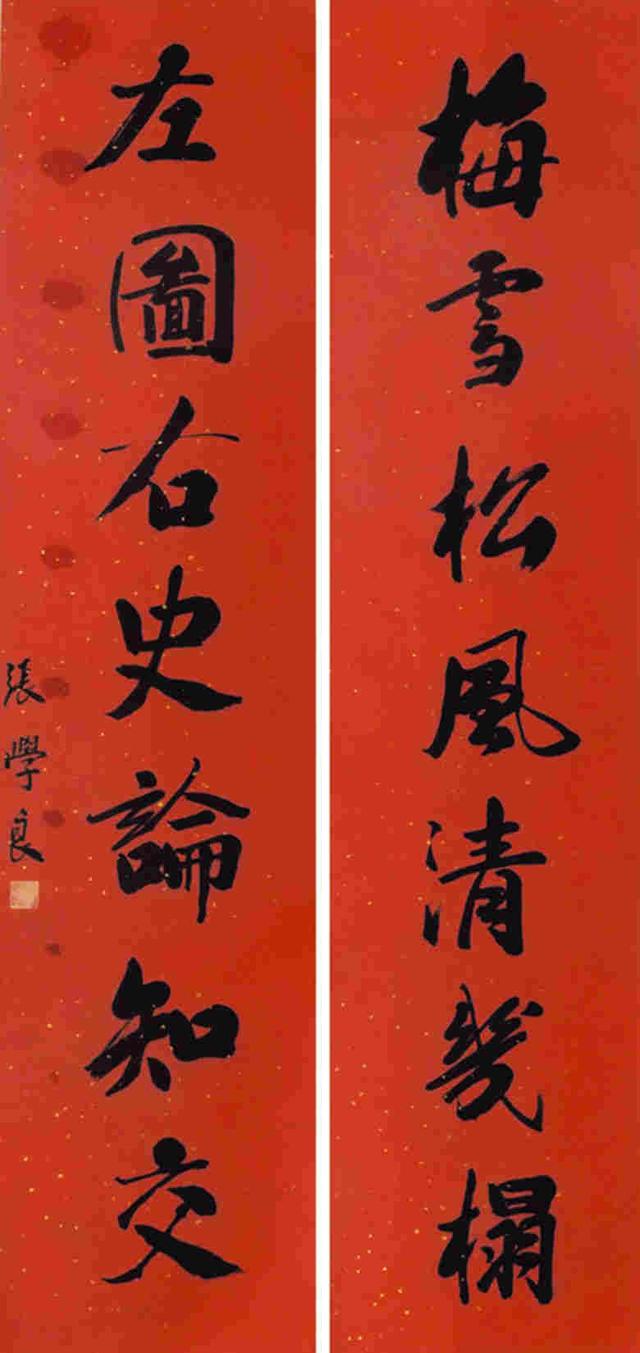 梅雪松風清幾榻
左圖右史論知交
張學良